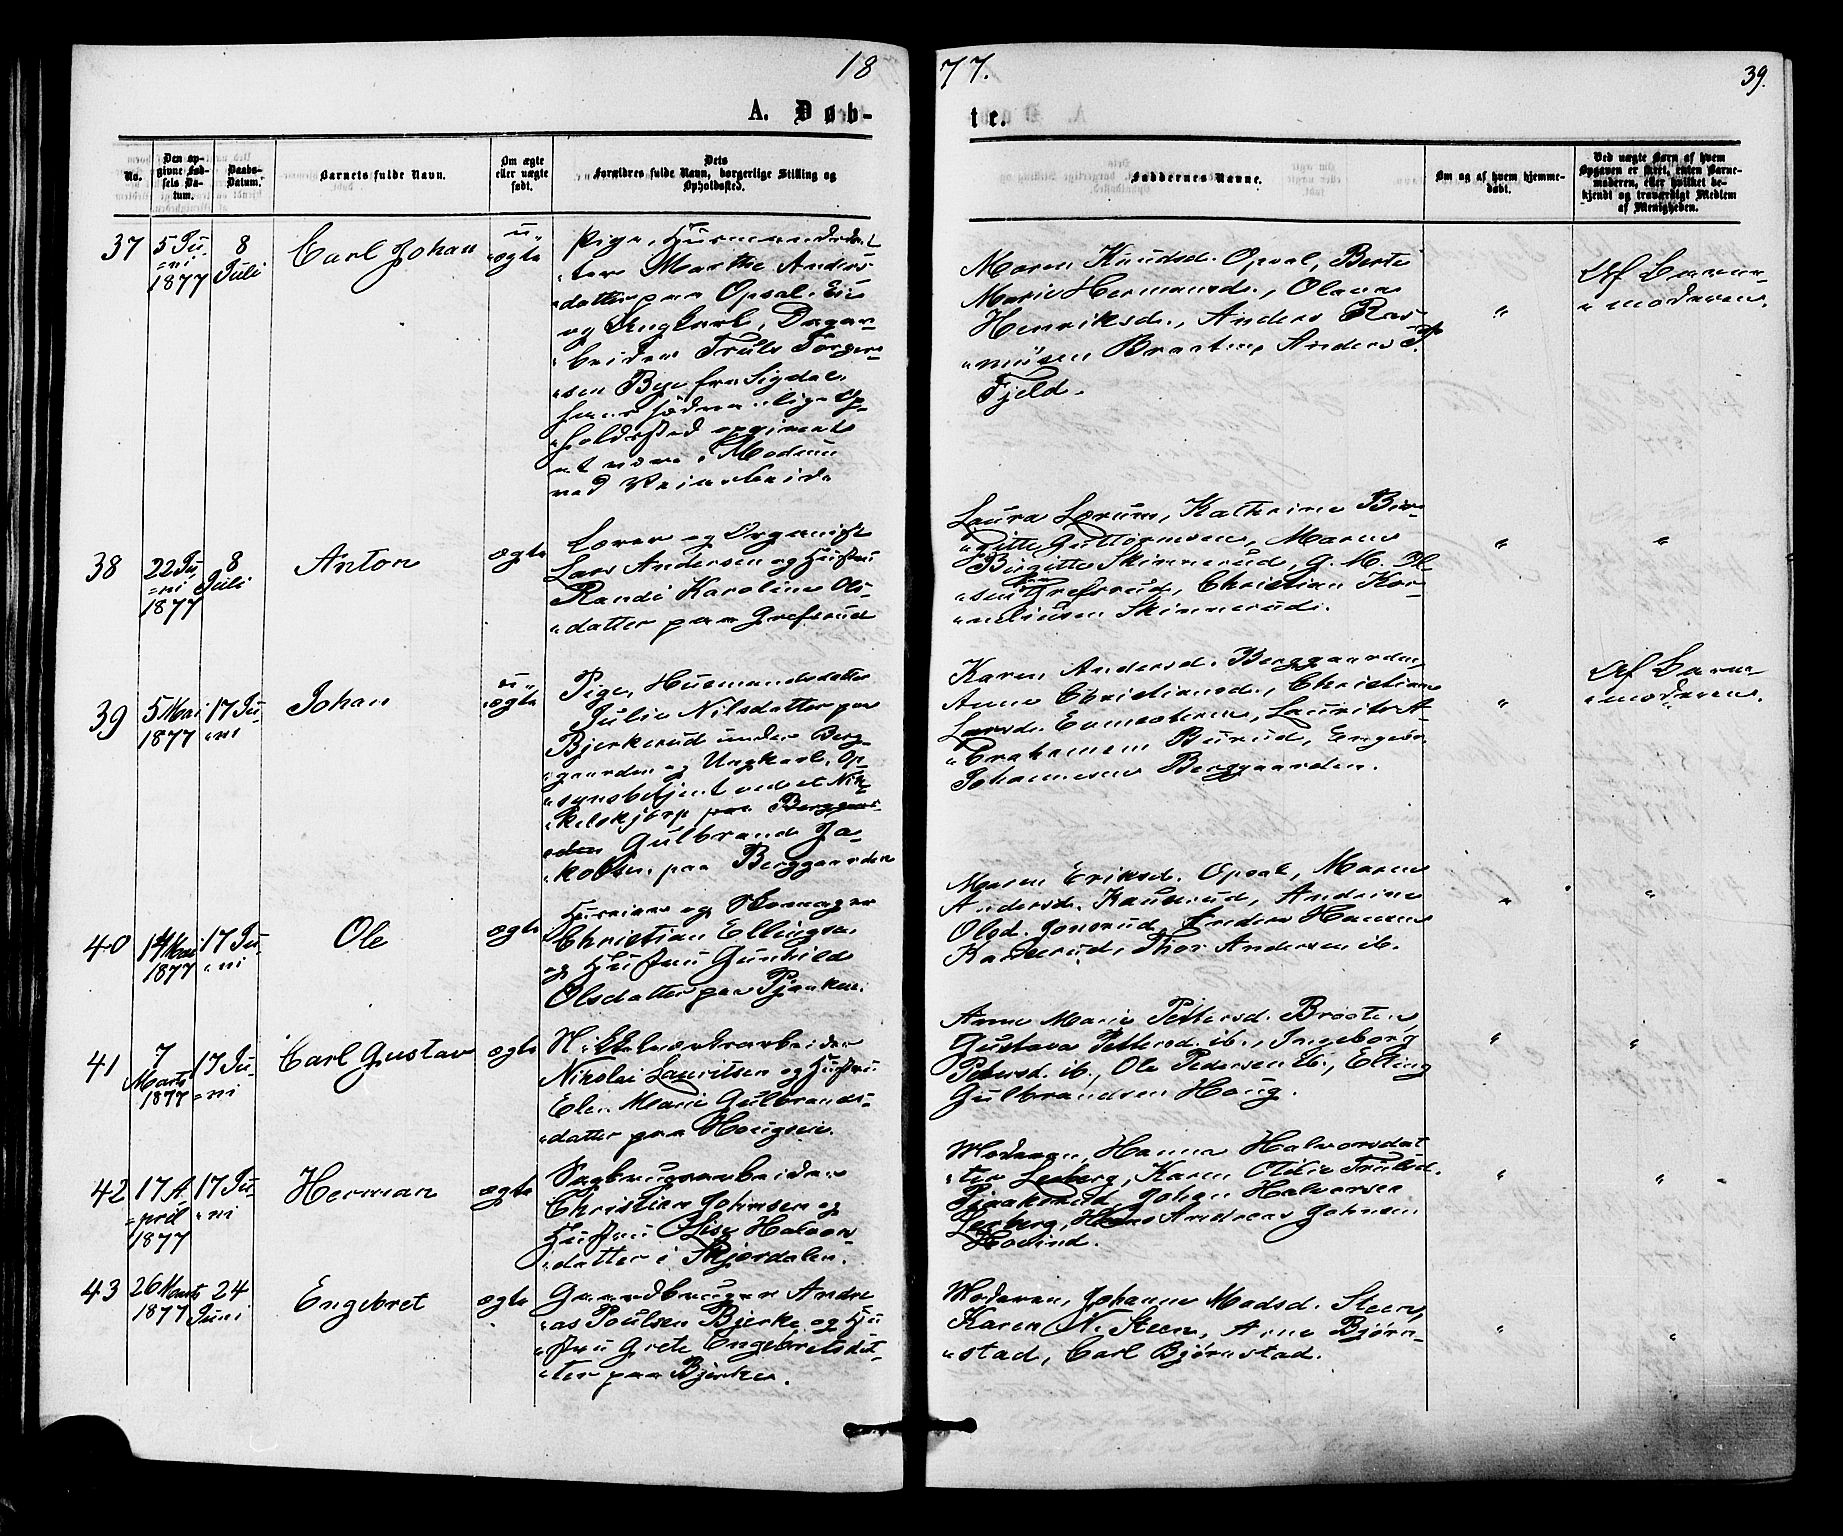 18
77.
39.
A. Døb-
te.
No.
Den op-
givne Fød-
sels Da-
tum.
Daabs-
Datum.
Barnets fulde Navn.
Om ægte
eller uægte
født.
Dets
Forældres fulde Navn, borgerlige Stilling og
Opholdssted.
Faddernes Navne.
Om og af hvem hjemme-
døbt.
Ved uægte Børn af hvem
Opgaven er skeet, enten Barne-
moderen, eller hvilket be-
kjendt og troværdigt Medlem
af Menigheden.
37
5 Ju-
=ni
1877
8
Juli
Carl Johan
u-
=ægte
Pige, Husmandsdat-
ter Marthe Anders-
=datter paa Opsal Eie
og Ungkarl, Dagar-
=beider Truls Torger-
=sen Bye fra Sigdal,
hans sædvanlige Op-
=holdssted opgivent
at være i Modum
ved Veiarbeide
Maren Knudsd. Opsal, Berte
Marie Hermansd., Olava
Henriksd., Anders Ras-
=musen Braaten, Anders
Fjeld.
"
Af Barne-
=moderen.
38
22 Ju-
=ni
1877
8
Juli
Anton
ægte
Lærer og Organist
Lars Andersen og Hustru
Randi Karoline Ols-
=datter paa Grefsrud
Laura Lærum, Kathrine Bir-
=gitte Guttormsen, Maren
Birgitte Skinnerud, G. M. Ol-
=sen Grefsrud, Christian Kor-
=neliusen Skinnerud.
"
"
39
5 Mai
1877
17 Ju-
=ni
Johan
u-
=ægte
Pige, Husmandsdatter
Julie Nilsdatter paa
Bjerkerud under Berg-
=gaarden og Ungkarl, Op-
=synsbetjent ved et Nik-
=kelskjærp paa Berggaar-
=den Gulbrand Ja-
=kobsen paa Berggaarden
Karen Andersd. Berggaarden,
Anne Christiansd., Christiane
Larsd. Enmesteren, Laurits A-
=brahamsen Burud, Engebr.
Johannesen Berggaarden.
"
Af Barne-
=moderen.
40
14 Mai
1877
17 Ju-
=ni
Ole
ægte
Huseier og Skomager
Christian Ellingsen
og Hustru Gunhild
Olsdatter paa Pjaaken.
Maren Eriksd. Opsal, Maren
Andersd. Kaunrud, Andrine
Olsd. Gonsrud, Anders Hansen
Kaunrud, Thor Andersen ib.
"
"
41
7
Marts
1877
17 Ju-
=ni
Carl Gustav
ægte
Nikkelværksarbeider
Nikolai Lauritsen og Hustru
Elen Marie Gulbrands-
=datter paa Hougsein.
Anne Marie Pettersd. Braaten,
Gustava Pettersd. ib., Ingeborg
Petersd. ib., Ole Pedersen ib., Elling
Gulbrandsen Houg.
"
"
42
17 A-
=pril
1877
17 Ju-
=ni
Herman
ægte
Sagbrugsarbeider
Christian Johnsen og
Hustru Lise Halvors-
=datter i Skjørdalen.
Moderen, Hanna Halvorsdat-
=ter Leeberg, Karen Otilie Trulsd.
Pjaakerud, Johan Halvorsen
Leeberg, Hans Andreas Johnsen
Hovind.
"
"
43
26 Marts
1877
24
Juni
Engebret
ægte
Gaardbruger Andre
=as Poulsen Bjerke og Hu
=stru Grete Engebretsdat-
=ter paa Bjerke.
Moderen, Johanne Madsd. Steen,
Karen N. Steen, Arne Bjørn-
=stad, Carl Bjørnstad.
"
"